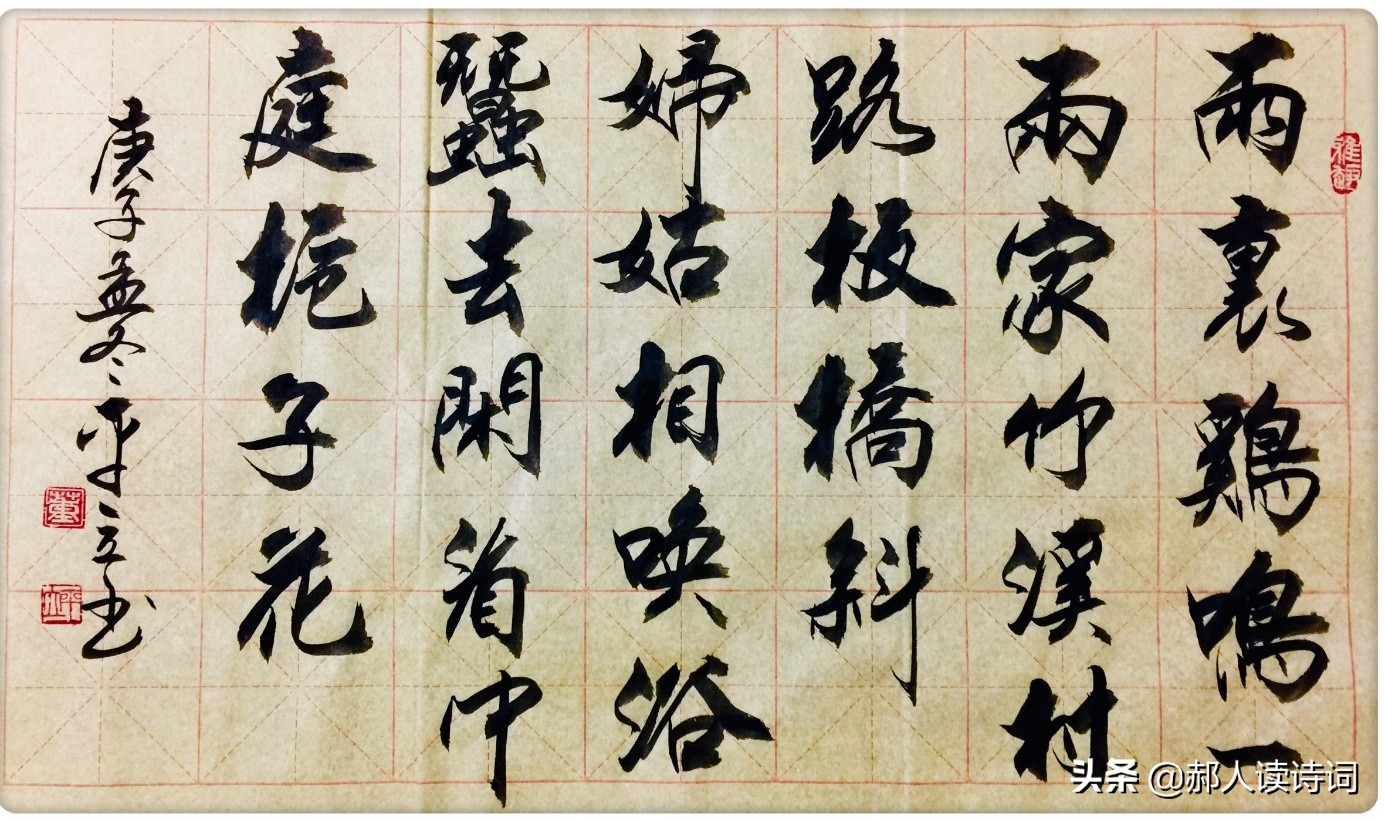 雨裏鷄鳴一
兩家竹溪村
路板橋斜
婦姑相唤浴
蠶去閑看中
庭栀子花
庚子孟冬平立书
董
头条 @郝人读诗词